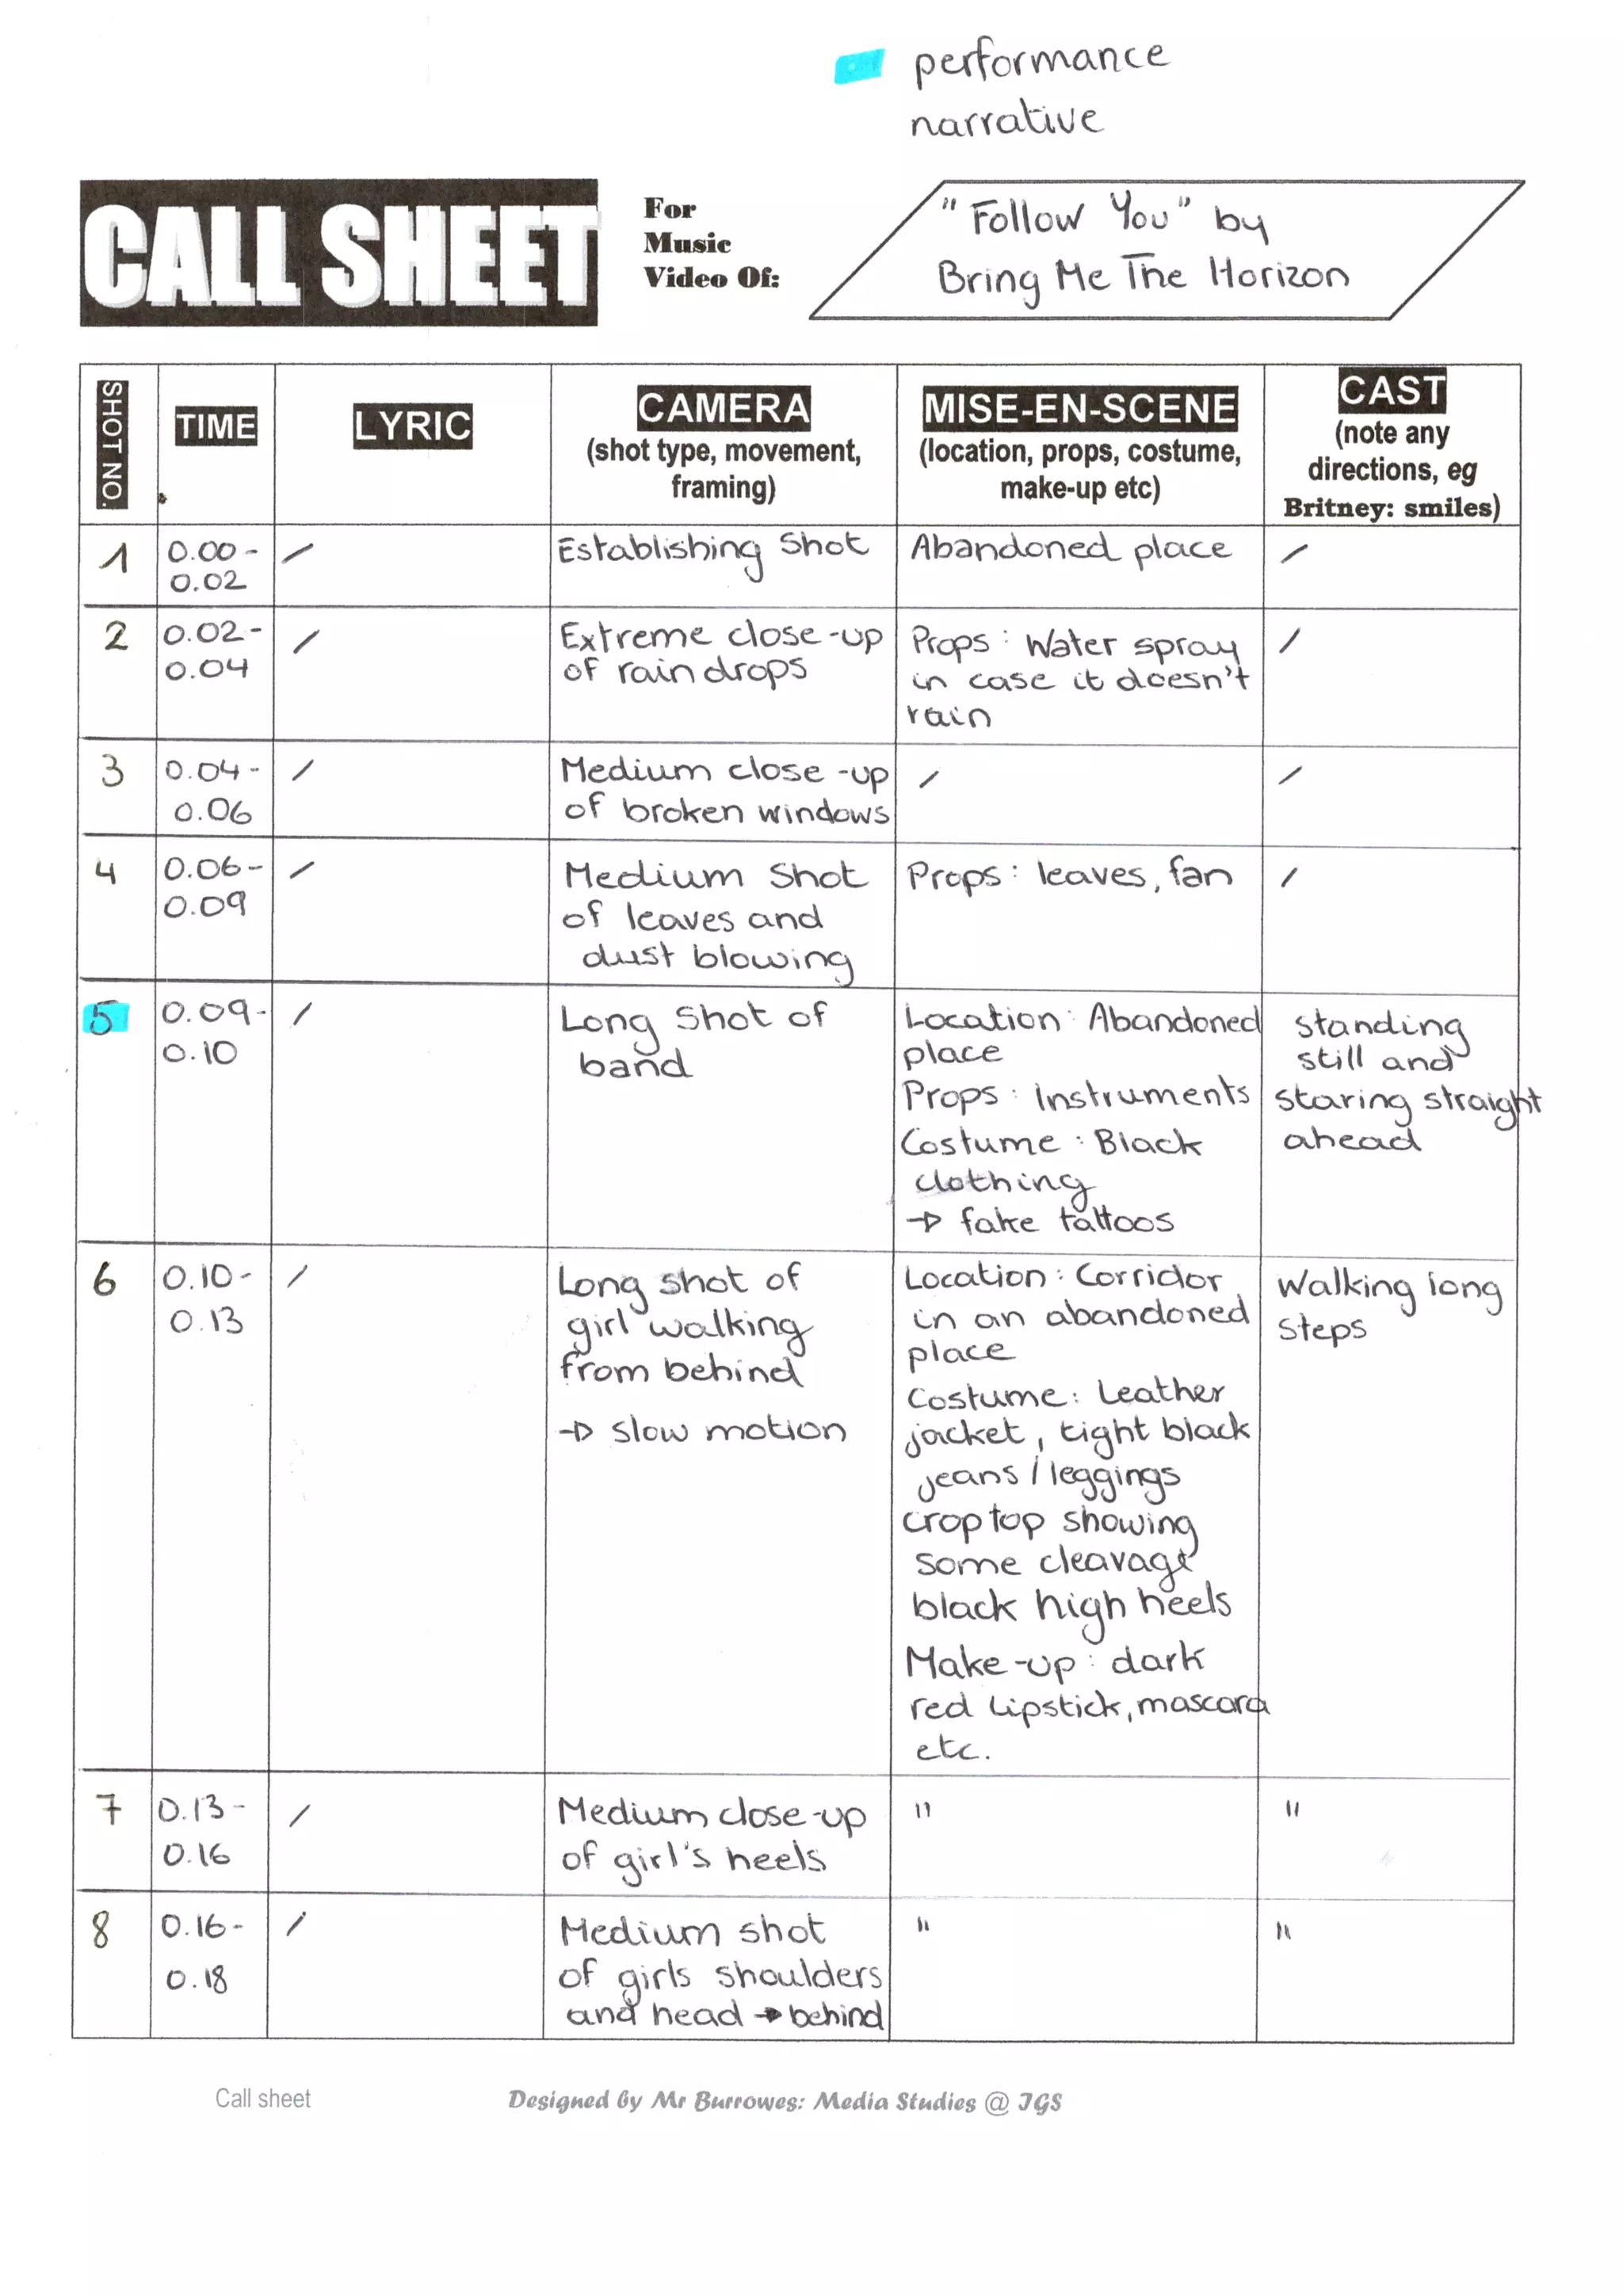 performance
narrative
CALL SHEET
For
Music
Video Of:
"Follow You" by
Bring Me The Horizon
SHOT NO.
TIME
LYRIC
CAMERA
(shot type, movement,
framing)
MISE-EN-SCENE
(location, props, costume,
make-up etc)
CAST
(note any
directions, eg
Britney: smiles)
1
0.00 -
0.02
/
Establishing Shot
Abandoned place
/
2
0.02 -
0.04
/
Extreme close-up
of rain drops
Props : Water spray
in case it doesn't
rain
/
3
0.04 -
0.06
/
Medium close-up
of broken windows
/
/
4
0.06 -
0.09
/
Medium Shot
of leaves and
dust blowing
Props : leaves, fan
/
5
0.09 -
0.10
/
Long Shot of
band
Location : Abandoned
place
Props : Instruments
Costume : Black
clothing
→ fake tattoos
standing
still and
staring straight
ahead
6
0.10 -
0.13
/
Long shot of
girl walking
from behind
→ slow motion
Location : Corridor
in an abandoned
place
Costume : Leather
jacket, tight black
jeans / leggings
crop top showing
some cleavage
black high heels
Make-up : dark
red lipstick, mascara
etc.
Walking long
steps
7
0.13 -
0.16
/
Medium close-up
of girl's heels
"
"
8
0.16 -
0.18
/
Medium shot
of girls shoulders
and head → behind
"
"
Call sheet
Designed by Mr Burrowes: Media Studies @ IGS